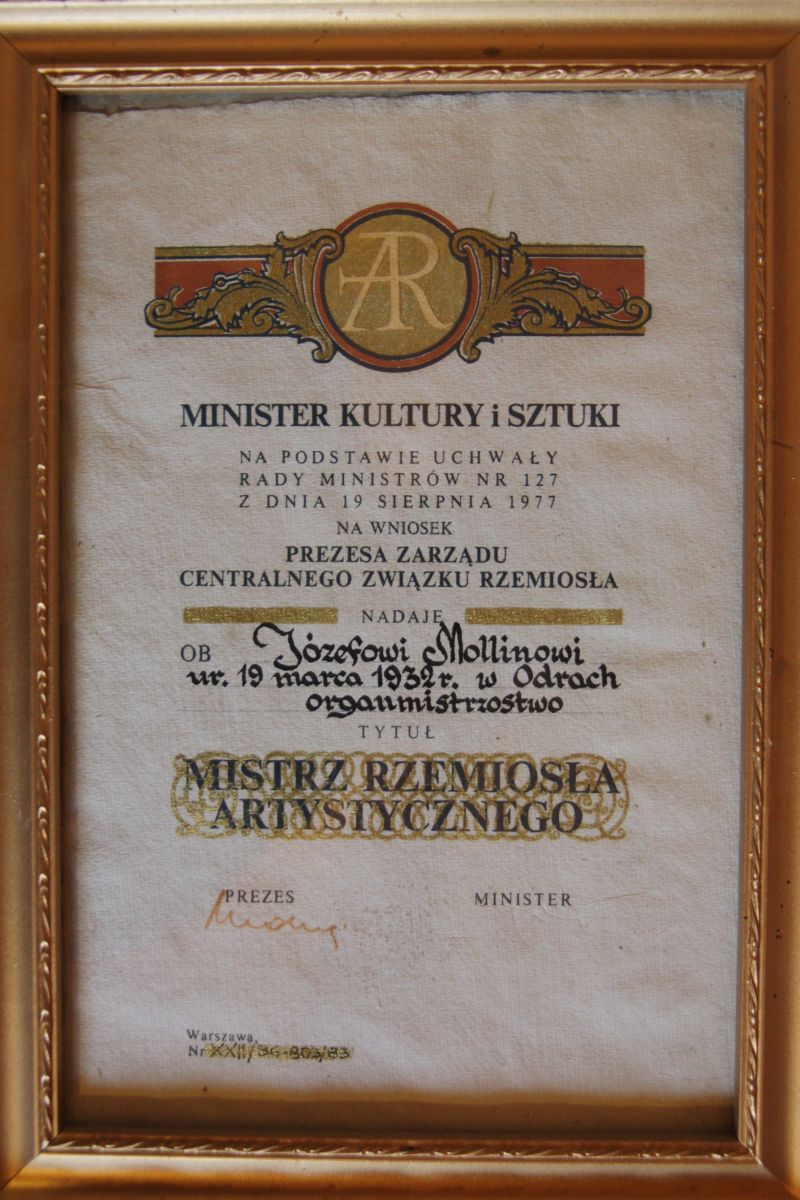 AR
MINISTER KULTURY i SZTUKI
NA PODSTAWIE UCHWAŁY
RADY MINISTRÓW NR 127
Z DNIA 19 SIERPNIA 1977
NA WNIOSEK
PREZESA ZARZĄDU
CENTRALNEGO ZWIĄZKU RZEMIOSŁA
NADAJE
OB Józefowi Mollinowi
ur. 19 marca 1932 r. w Odrach
organmistrzostwo
TYTUŁ
MISTRZ RZEMIOSŁA
ARTYSTYCZNEGO
PREZES MINISTER
Warszawa,
Nr XXII/36-803/83